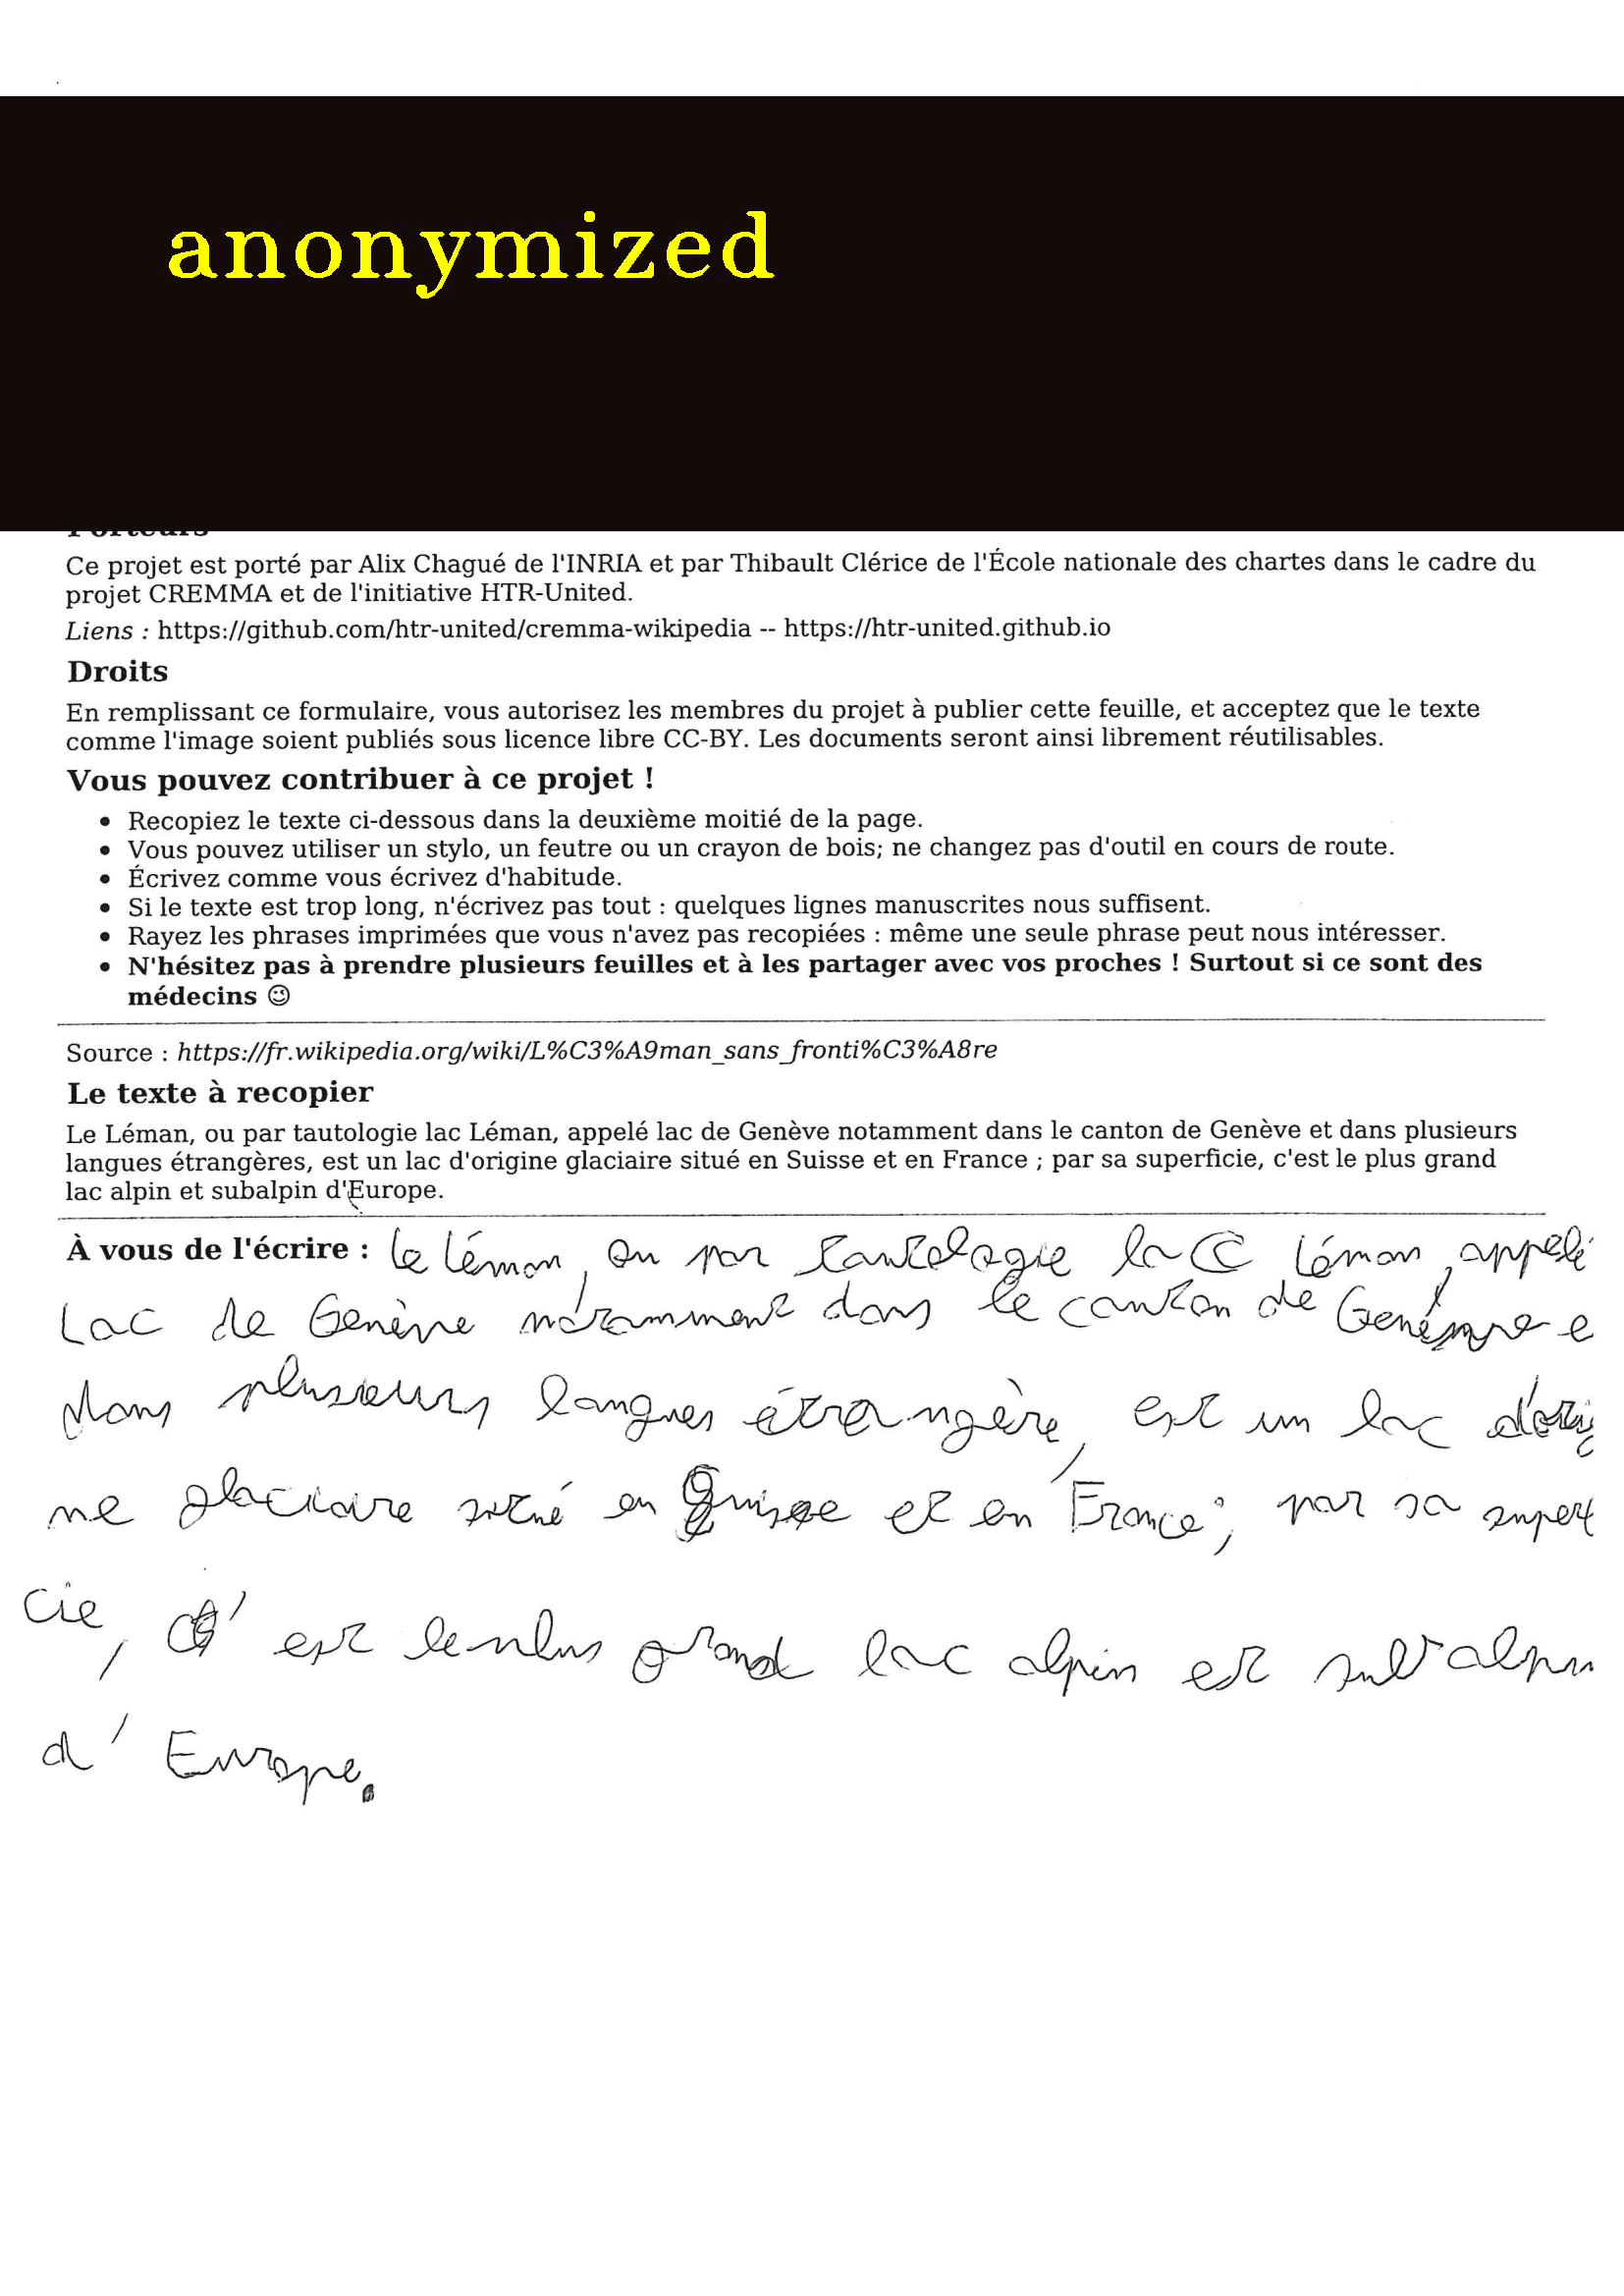 anonymized
Porteurs
Ce projet est porté par Alix Chagué de l'INRIA et par Thibault Clérice de l'École nationale des chartes dans le cadre du
projet CREMMA et de l'initiative HTR-United.
Liens : https://github.com/htr-united/cremma-wikipedia -- https://htr-united.github.io
Droits
En remplissant ce formulaire, vous autorisez les membres du projet à publier cette feuille, et acceptez que le texte
comme l'image soient publiés sous licence libre CC-BY. Les documents seront ainsi librement réutilisables.
Vous pouvez contribuer à ce projet !
• Recopiez le texte ci-dessous dans la deuxième moitié de la page.
• Vous pouvez utiliser un stylo, un feutre ou un crayon de bois; ne changez pas d'outil en cours de route.
• Écrivez comme vous écrivez d'habitude.
• Si le texte est trop long, n'écrivez pas tout : quelques lignes manuscrites nous suffisent.
• Rayez les phrases imprimées que vous n'avez pas recopiées : même une seule phrase peut nous intéresser.
• N'hésitez pas à prendre plusieurs feuilles et à les partager avec vos proches ! Surtout si ce sont des
médecins 😉
Source : https://fr.wikipedia.org/wiki/L%C3%A9man_sans_fronti%C3%A8re
Le texte à recopier
Le Léman, ou par tautologie lac Léman, appelé lac de Genève notamment dans le canton de Genève et dans plusieurs
langues étrangères, est un lac d'origine glaciaire situé en Suisse et en France ; par sa superficie, c'est le plus grand
lac alpin et subalpin d'Europe.
À vous de l'écrire : Le Léman, ou par tautologie lac Léman, appelé
Lac de Genève notamment dans le canton de Genève e
dans plusieurs langues étrangère, est un lac d'orig
ne glaciaire situé en Suisse et en France ; par sa superf
cie, c' est le plus grand lac alpin et subalpin
d' Europe.